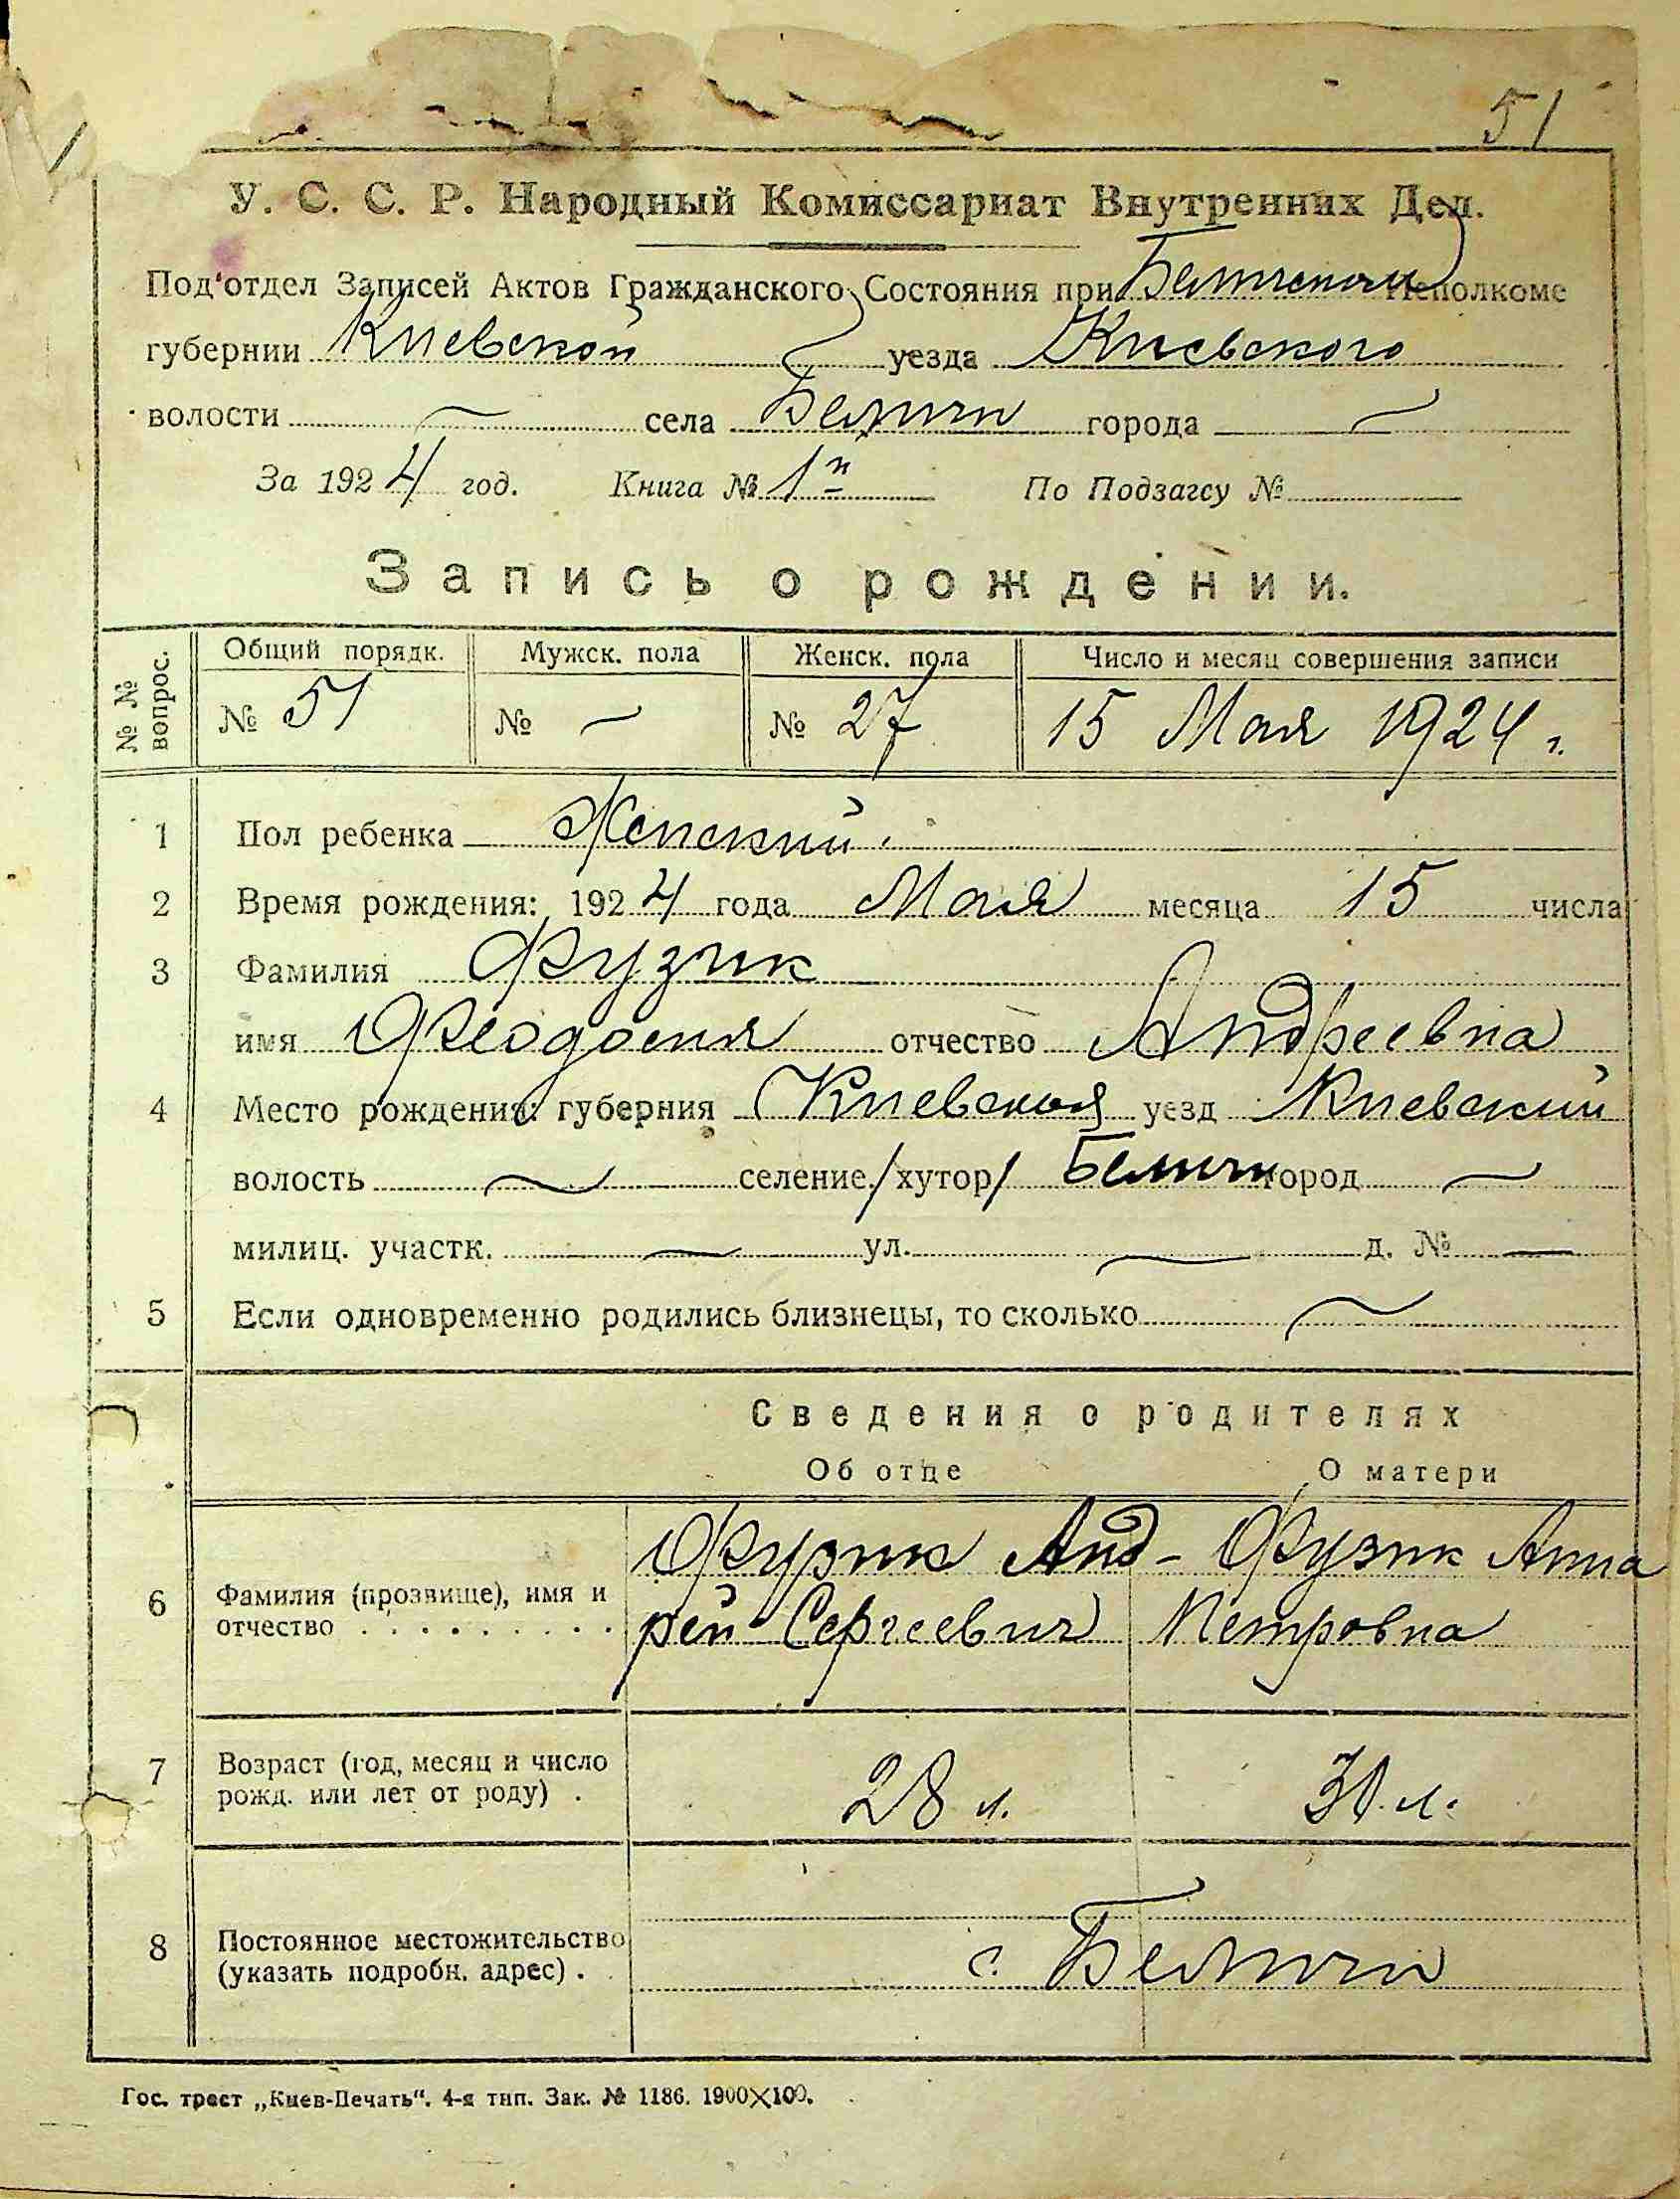 51
У. С. С. Р. Народный Комиссариат Внутренних Дел.
Под'отдел Записей Актов Гражданского Состояния при Беличском Исполкоме
губернии Киевской уезда Киевского
волости — села Беличи города —
За 1924 год. Книга № 1я По Подзагсу №
Запись о рождении.
№ № вопрос. Общий порядк. Мужск. пола Женск. пола Число и месяц совершения записи
№ 51 № — № 27 15 Мая 1924 г.
1 Пол ребенка Женский.
2 Время рождения: 1924 года Мая месяца 15 числа
3 Фамилия Фузик
имя Феодосия отчество Андреевна
4 Место рождения: губерния Киевская уезд Киевский
волость — селение/хутор/ Беличи город —
милиц. участк. — ул. — д. № —
5 Если одновременно родились близнецы, то сколько —
Сведения о родителях
Об отце О матери
Фузик Анд- Фузик Анна
6 Фамилия (прозвище), имя и
отчество . . . . . . . . . рей Сергеевич Петровна
7 Возраст (год, месяц и число
рожд. или лет от роду) . 28 л. 30 л.
8 Постоянное местожительство
(указать подробн. адрес) . с. Беличи
Гос. трест „Киев-Печать“. 4-я тип. Зак. № 1186. 1900×100.